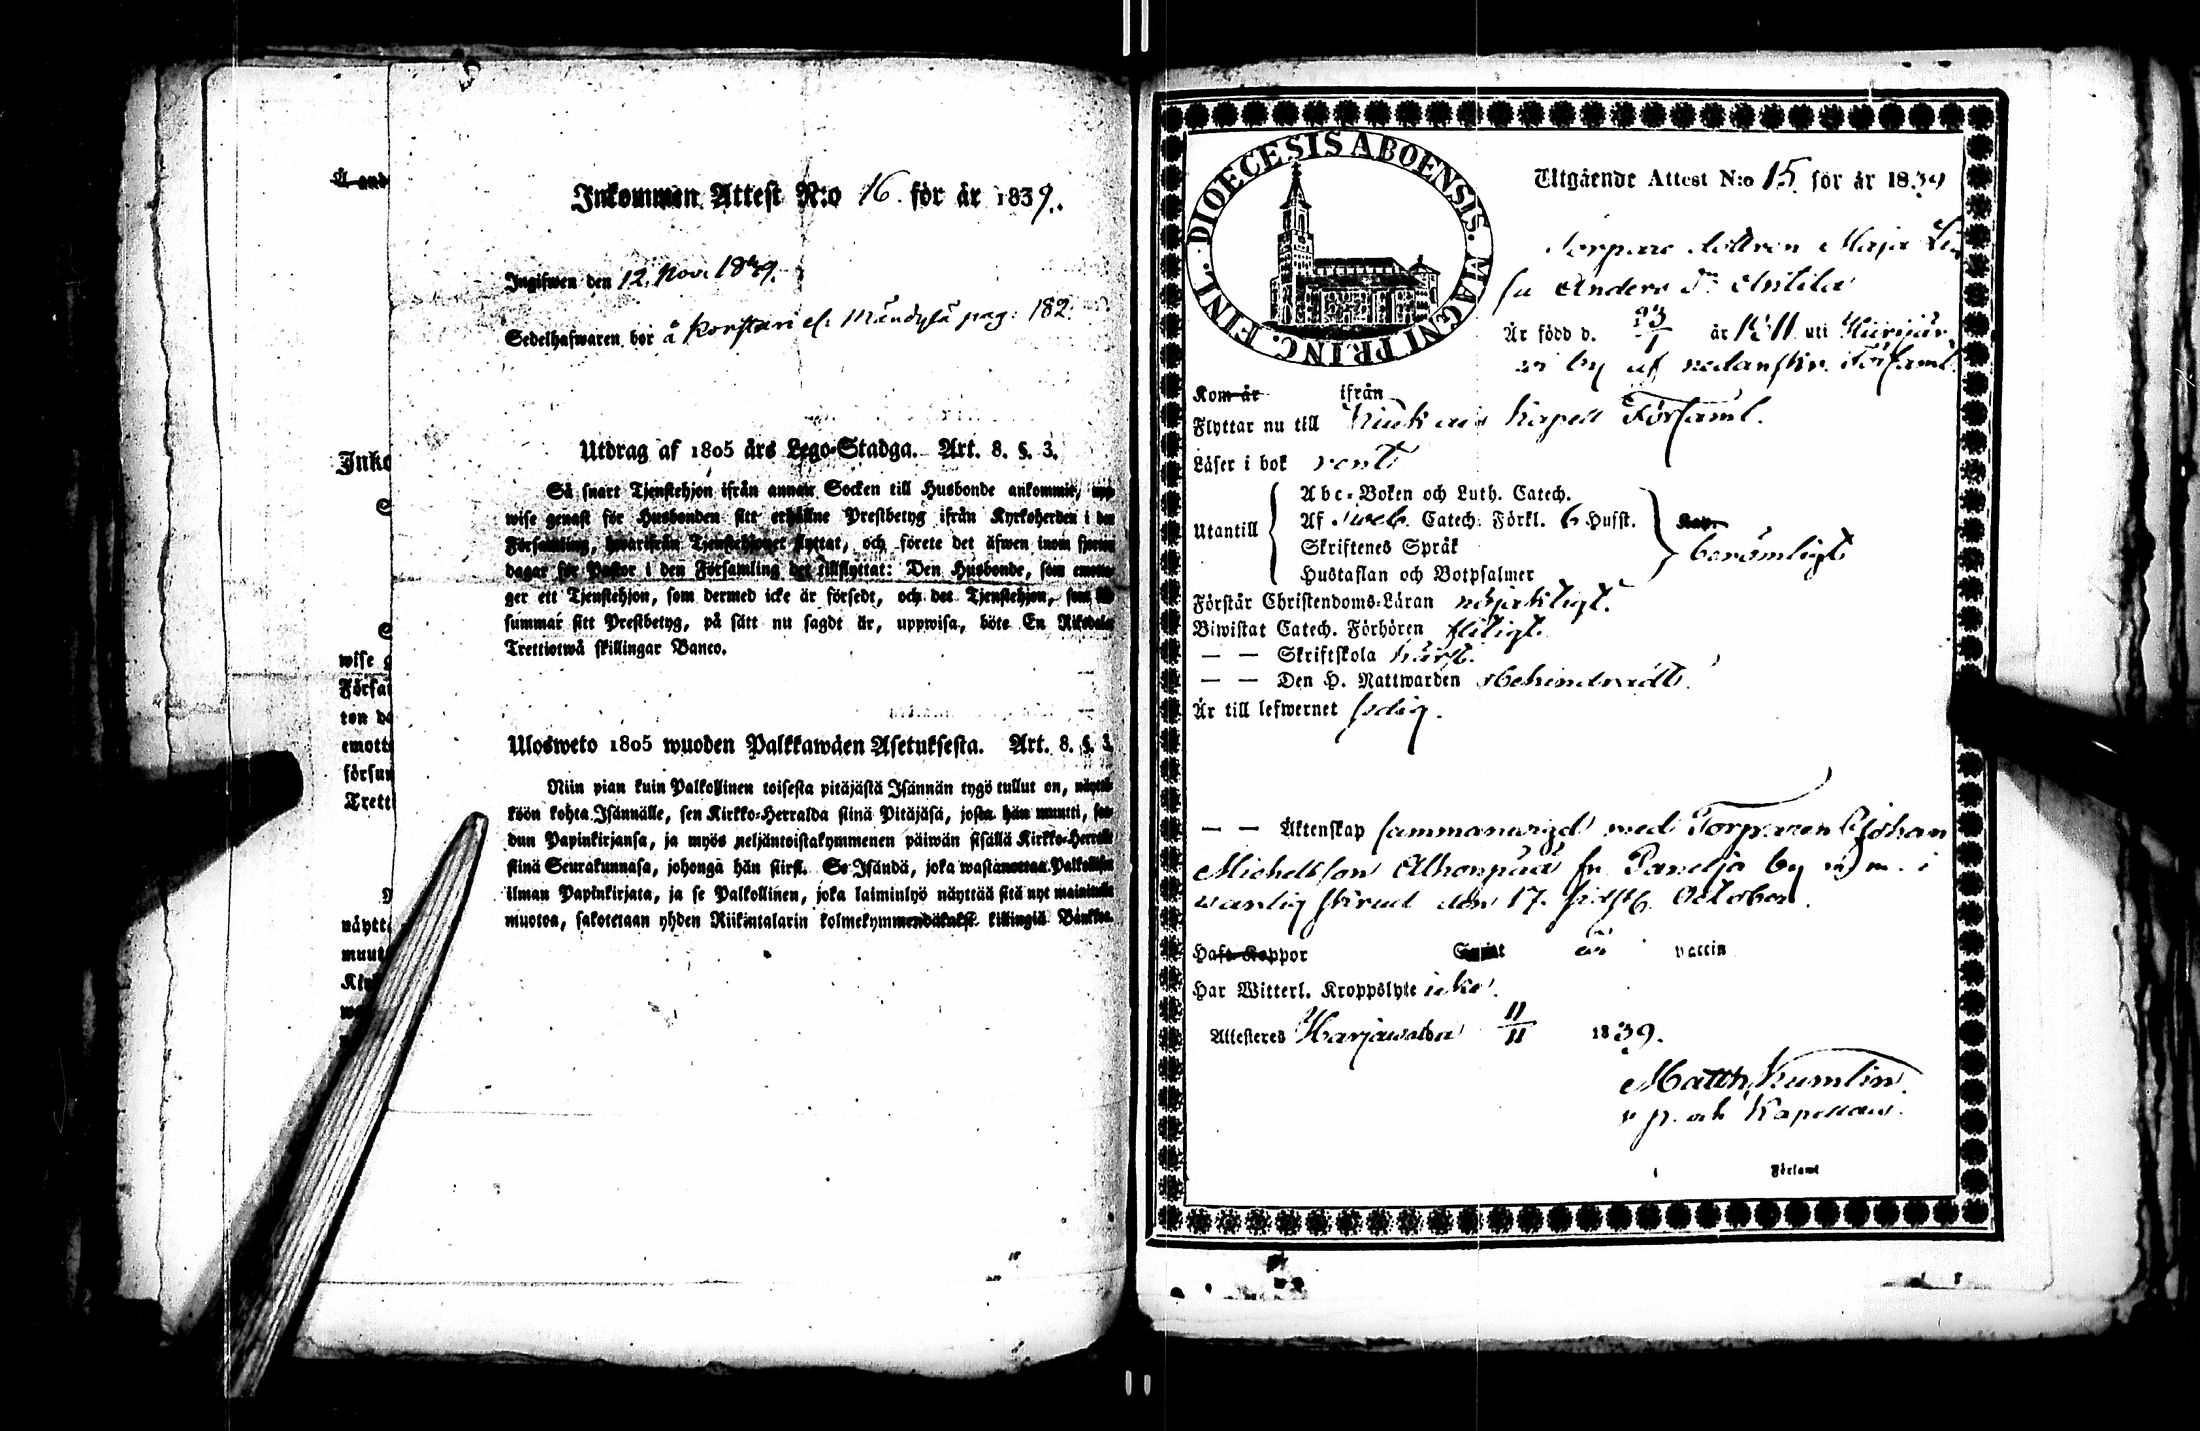 Å and
Inkommen Attest N:o 16. för år 1839.
Ingifwen den 12. Nov. 1839.
Sedelhafwaren bor å Korstari el. Mändylä pag: 182.
Inko
S
S
wise g
Försam
ton da
emotta
försum
Tretti
N
näytt
muut
Kir
wa
Utdrag af 1805 års Lego-Stadga. Art. 8. §. 3.
Så snart Tjenstehjon ifrån annan Socken till Husbonde ankommit, upp-
wise genast för Husbonden sitt erhållne Prestbetyg ifrån Kyrkoherden i den
Församling, hwarifrån Tjenstehjonet flyttat, och förete det äfwen inom fjorton
dagar för Pastor i den Församling det tillflyttat: Den Husbonde, som emotta-
ger ett Tjenstehjon, som dermed icke är försedt, och det Tjenstehjon, som för-
summar sitt Prestbetyg, på sätt nu sagdt är, uppwisa, böte En Riksdaler
Trettiotwå skillingar Banco.
Ulosweto 1805 wuoden Palkkawäen Asetuksesta. Art. 8. §. 3.
Niin pian kuin Palkollinen toisesta pitäjästä Isännän tygö tullut on, näyttä-
köön kohta Isännälle, sen Kirkko-Herralda siinä Pitäjäsä, josta hän muutti, saa-
dun Papinkirjansa, ja myös neljäntoistakymmenen päiwän sisällä Kirkko-Herralle
siinä Seurakunnasa, johonga hän siirsi. Se Isändä, joka wastanottaa Palkollisen
ilman Papinkirjata, ja se Palkollinen, joka laiminlyö näyttää sitä nyt mainitulla
muotoa, sakotetaan yhden Riikintalarin kolmekymmendäkaksi killingiä Bankos.
DIOECESIS ABOENSIS. MAGNI PRINC. FINL.
Utgående Attest N:o 15. för år 1839
Torpare dottren Maja Li-
sa Anders Dr Anttila
Är född d. 23/1 år 1811 uti Hiirijär-
vi by af nedanskr. Församl.
Kom år ifrån
Flyttar nu till Kiukais Kapell Församl.
Läser i bok rent
Abc-Boken och Luth. Catech.
Utantill Af Sveb. Catech. Förkl. 6 Husst.
Skriftenes Språk
Hustaflan och Botpsalmer
berömligt
Förstår Christendoms-Läran nöjaktigt.
Biwistat Catech. Förhören flitigt.
— — Skriftskola
— — Den H. Nattwarden obehindradt.
Är till lefwernet sedig.
— — Äktenskap sammanwigd med Torparen Johan
Michelsson Alhonpää fr. Paneija by m. m. i
vanlig stånd den 17. sidstl. October.
Haft Koppor Samt är vaccin
Har Witterl. Kroppslyte icke.
Attesteres Harjawalda 11/11 1839.
Matth. Kumlin.
v. p. och Kapellan.
Församl